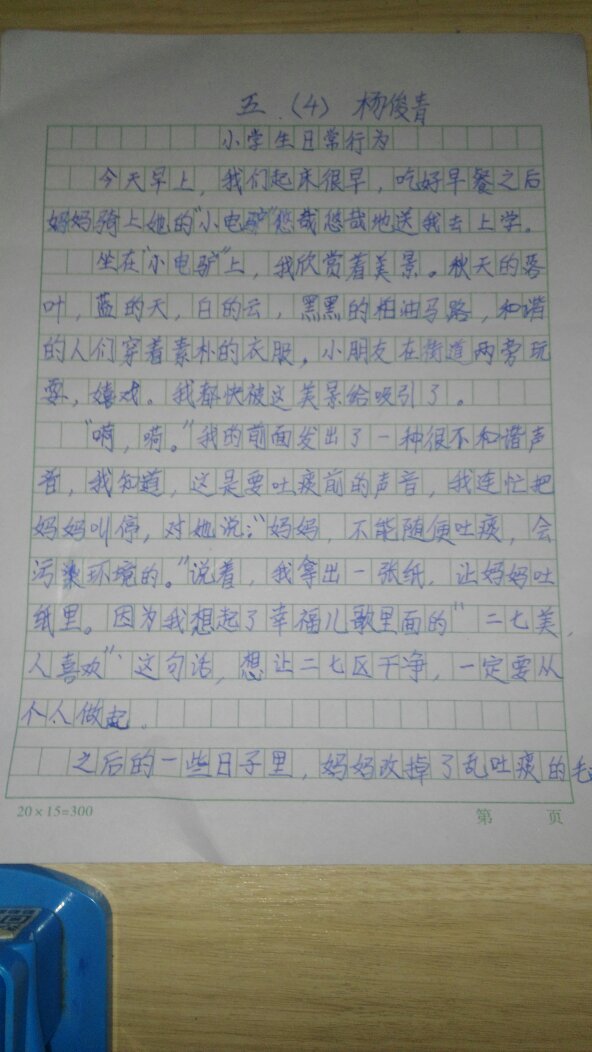 五（4） 杨俊青
小学生日常行为
今天早上，我们起床很早，吃好早餐之后
妈妈骑上她的“小电驴”悠哉悠哉地送我去上学。
坐在“小电驴”上，我欣赏着美景。秋天的落
叶，蓝的天，白的云，黑黑的柏油马路，和谐
的人们穿着素朴的衣服，小朋友在街道两旁玩
耍，嬉戏。我都快被这美景给吸引了。
“啊，嗬。”我的前面发出了一种很不和谐声
音，我知道，这是要吐痰前的声音，我连忙把
妈妈叫停，对她说：“妈妈，不能随便吐痰，会
污染环境的。”说着，我拿出一张纸，让妈妈吐
纸里。因为我想起了幸福儿歌里面的“二七美，
人喜欢”这句话，想让二七区干净，一定要从
个人做起。
之后的一些日子里，妈妈改掉了乱吐痰的毛
20×15=300
第 页